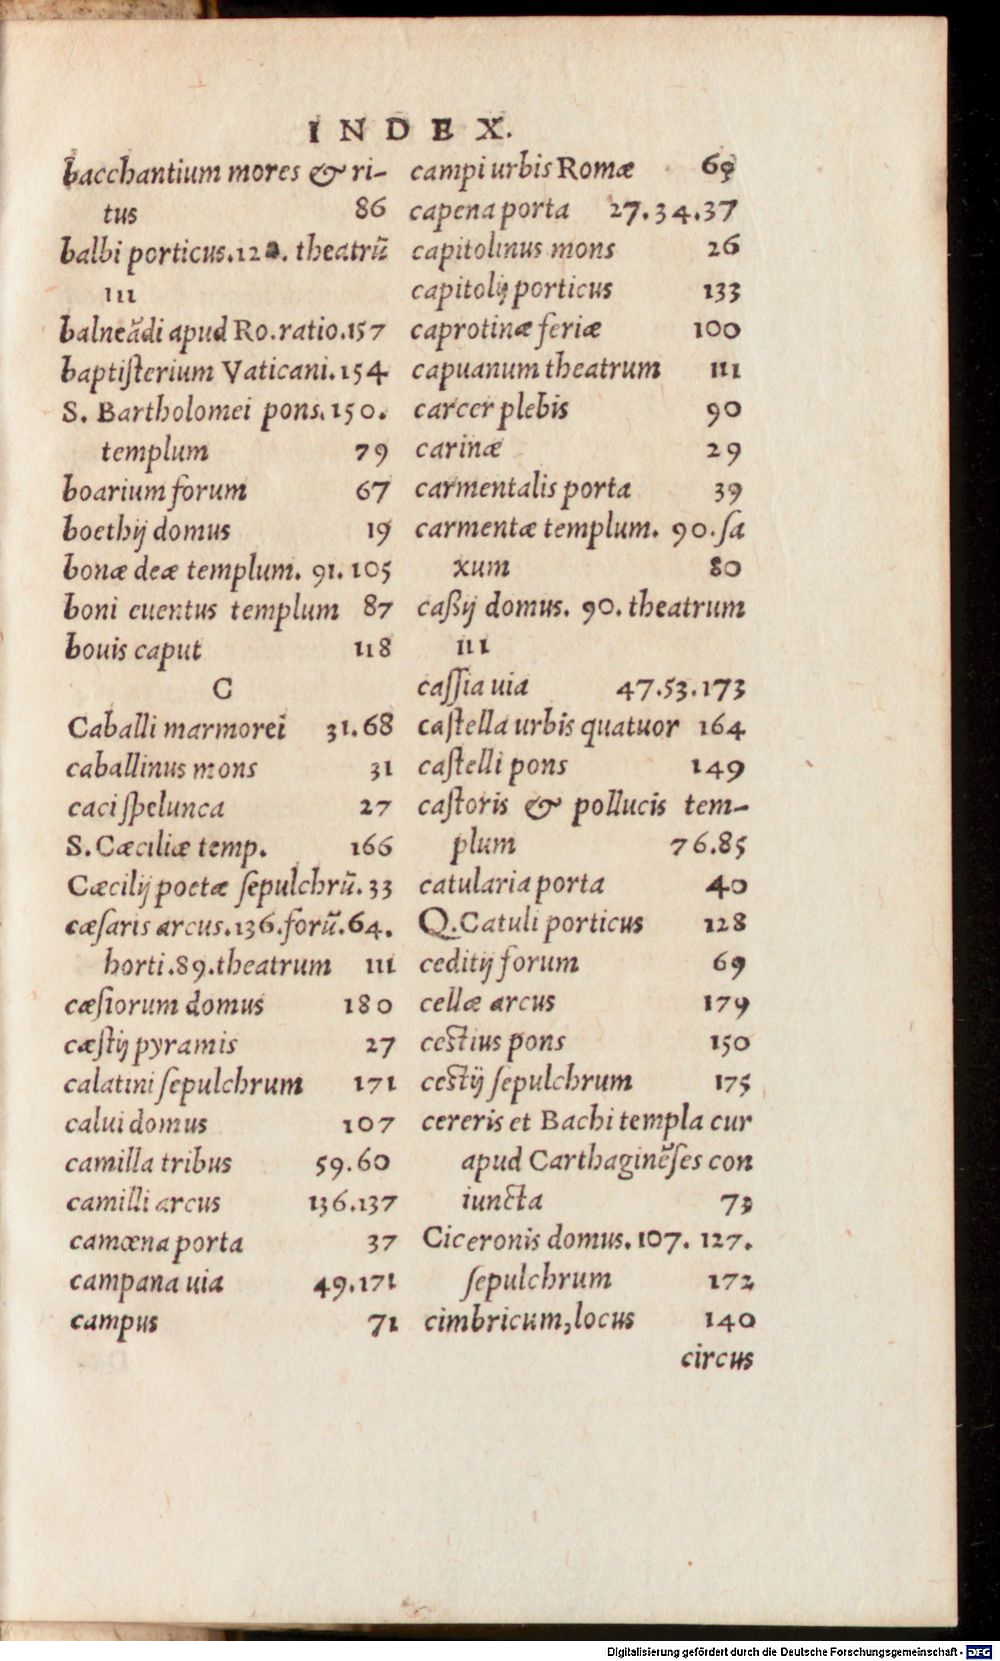 INDEX.
bacchantium mores & ri-
tus 86
balbi porticus.12 . theatrū
111
balneādi apud Ro.ratio.157
baptiſterium Vaticani.154
S. Bartholomei pons.150.
templum 79
boarium forum 67
boethij domus 19
bonæ deæ templum. 91.105
boni euentus templum 87
bouis caput 118
C
Caballi marmorei 31.68
caballinus mons 31
caci ſpelunca 27
S.Cæciliæ temp. 166
Cæcilij poetæ ſepulchrū.33
cæſaris arcus.136.forū.64.
horti.89.theatrum 111
cæſiorum domus 180
cæſtij pyramis 27
calatini ſepulchrum 171
calui domus 107
camilla tribus 59.60
camilli arcus 136.137
camœna porta 37
campana uia 49.171
campus 71
campi urbis Romæ 69
capena porta 27.34.37
capitolinus mons 26
capitolij porticus 133
caprotinæ feriæ 100
capuanum theatrum 111
carcer plebis 90
carinæ 29
carmentalis porta 39
carmentæ templum. 90.ſa
xum 80
caßij domus. 90. theatrum
111
caſſia uia 47.53.173
caſtella urbis quatuor 164
caſtelli pons 149
caſtoris & pollucis tem-
plum 76.85
catularia porta 40
Q.Catuli porticus 128
ceditij forum 69
cellæ arcus 179
ceſtius pons 150
ceſtij ſepulchrum 175
cereris et Bachi templa cur
apud Carthaginēſes con
iuncta 73
Ciceronis domus.107. 127.
ſepulchrum 172
cimbricum,locus 140
circus
Digitalisierung gefördert durch die Deutsche Forschungsgemeinschaft - DFG